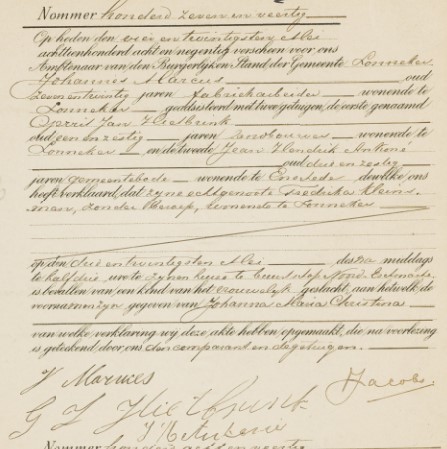 Nommer honderd zeven en veertig
Op heden den vier en twintigsten Mei
achttienhonderd acht en negentig verscheen voor ons
Ambtenaar van den Burgerlijken Stand der Gemeente Lonneker
Johannes Marcus oud
zeven en twintig jaren fabriekarbeider wonende te
Lonneker geadsisteerd met twee getuigen, de eerste genaamd
Gerrit Jan Vliesbrink
oud een en zestig jaren landbouwer wonende te
Lonneker en de tweede Jean Hendrik
oud drie en zestig
jaren gemeentebode wonende te Enschede dewelke ons
heeft verklaard, dat zijne echtgenoote Frederika Kleins
man, zonder beroep, wonende te Lonneker
op den drie en twintigsten Mei des na middags
te half drie ure te zijnen huize te
is bevallen van een kind van het vrouwelijk geslacht, aan hetwelk de
voornamen zijn gegeven van Johanna Maria Christina
van welke verklaring wij deze akte hebben opgemaakt, die na voorlezing
is geteekend door ons den comparant en de getuigen.
J Marcus
Jacobs
G J
Nommer honderd acht en veertig